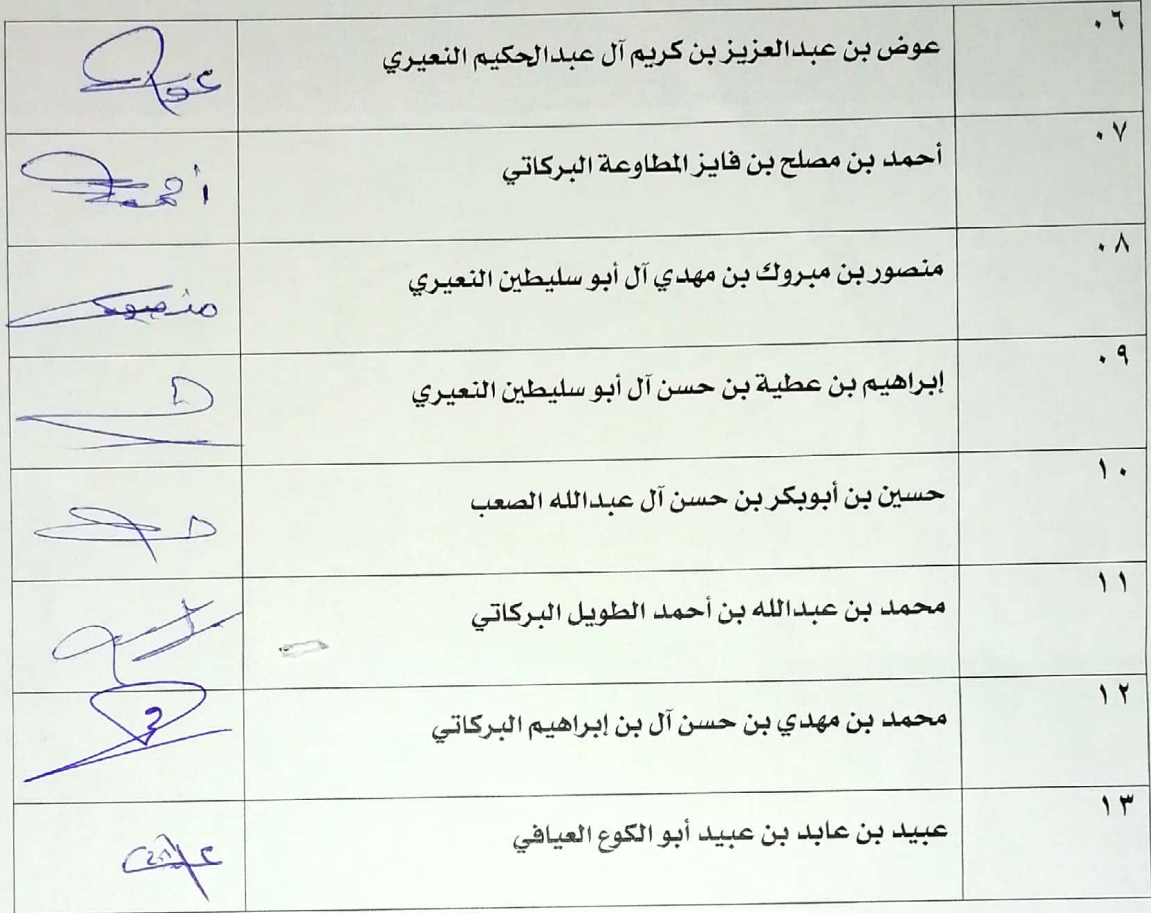 ٠٦ عوض بن عبدالعزيز بن كريم آل عبدالحكيم النعيري عوض
٠٧ أحمد بن مصلح بن فايز المطاوعة البركاتي أحمد
٠٨ منصور بن مبروك بن مهدي آل أبو سليطين النعيري منصور
٠٩ إبراهيم بن عطية بن حسن آل أبو سليطين النعيري
١٠ حسين بن أبوبكر بن حسن آل عبدالله الصعب
١١ محمد بن عبدالله بن أحمد الطويل البركاتي
١٢ محمد بن مهدي بن حسن آل بن إبراهيم البركاتي
١٣ عبيد بن عابد بن عبيد أبو الكوع العيافي